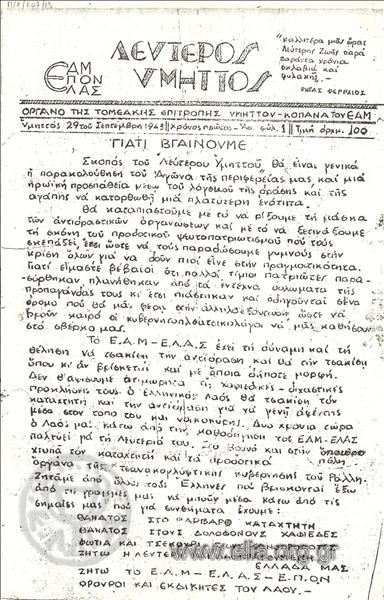 Π/Λ/207/13
ΕΑΜ
ΕΠΟΝ
ΕΛΑΣ
ΛΕΥΤΕΡΟΣ
ΥΜΗΤΤΟΣ
"καλλίτερα μιάς ώρας
λεύτερης ζωής παρά
σαράντα χρόνια
σκλαβιά καί
φυλακή,,
ΡΗΓΑΣ ΦΕΡΡΑΙΟΣ
ΟΡΓΑΝΟ ΤΗΣ ΤΟΜΕΑΚΗΣ ΕΠΙΤΡΟΠΗΣ ΥΜΗΤΤΟΥ-ΚΟΠΑΝΑ ΤΟΥ ΕΑΜ
Υμηττός 29 του Σεπτέμβρη 1943 || Χρόνος πρώτος - Αρ. φύλ. 1 || Τιμή δραχμ. 100
ΓΙΑΤΙ ΒΓΑΙΝΟΥΜΕ
Σκοπός του "Λεύτερου Υμηττού" θά είναι γενικά
ή παρακολούθηση του Αγώνα της περιφερείας μας καί μιά
ηρωϊκή προσπάθεια μέσω του λόγου της δράσης καί της
αγάπης νά κατορθωθή μιά πλατύτερη ενότητα.
Θά καταπιαστούμε μέ τό νά ρίξουμε τή μάσκα
τών αντιδραστικών οργανώσεων καί μέ τό νά ξεσκίδουμε
τή σκόνη του προδοτικού ψευτοπατριωτισμού πού τούς
σκεπάζει, έτσι ώστε νά τούς παραδώσουμε γυμνούς στήν
κρίση όλων γιά νά δούν ποιοί είναι στήν πραγματικότητα.
Γιατί είμαστε βέβαιοι ότι πολλοί τίμιοι πατριώτες παρα-
σύρθηκαν πλανήθηκαν από τά έντεχνα καμώματα της
προπαγάνδας τους κι' έτσι πιάστηκαν καί οδηγούνται σ' ένα
δρόμο πού θά μας φέρη στήν αλληλοεξόντωση ώστε νά
βρούν καιρό οι νά μας καθήσουν
στό σβέρκο μας.
Τό Ε.Α.Μ - Ε.Λ.Α.Σ έχει τή δύναμη καί τή
θέληση νά τσακίση τήν αντίδραση καί θά τήν τσακίση
όπου κι' άν βρίσκεται καί μέ όποια δήποτε μορφή.
Δέν θ' αφήσουμε ατιμώρητα τίς χαφιέδικες - διχαστικές
προκλήσεις τους. Ο ελληνικός Λαός θά τσακίση τόν
κατακτητή καί τήν αντίδραση γιά νά γενή αφέντης
μέσα στόν τόπο του καί νοικοκύρης. Δυό χρόνια τώρα
ο Λαός μας κάτω από τήν καθοδήγηση του ΕΑΜ-ΕΛΑΣ
παλεύει γιά τή Λευτεριά του. Στό βουνό καί στήν πόλη
χτυπά τόν κατακτητή καί τά προδοτικά
όργανα της "τσανακογλύφτικης κυβέρνησης του Ράλλη.
Ζητάμε από όλους τούς Έλληνες πού βρίσκονται έξω
από τίς γραμμές μας νά μπούν μέσα κάτω από τίς
σημαίες μας πού γιά συνθήματα έχουμε:
ΘΑΝΑΤΟΣ ΣΤΟ ΒΑΡΒΑΡΟ ΚΑΤΑΧΤΗΤΗ
ΘΑΝΑΤΟΣ ΣΤΟΥΣ ΔΟΛΟΦΟΝΟΥΣ ΧΑΦΙΕΔΕΣ
ΦΩΤΙΑ ΚΑΙ ΤΣΕΚΟΥΡΙ
ΖΗΤΩ Η ΛΕΥΤΕΡΗ
ΕΛΛΑΔΑ ΜΑΣ
ΖΗΤΩ ΤΟ Ε.Α.Μ - Ε.Λ.Α.Σ - Ε.Π.Ο.Ν
ΦΡΟΥΡΟΙ ΚΑΙ ΕΚΔΙΚΗΤΕΣ ΤΟΥ ΛΑΟΥ.
www.elia.org.gr